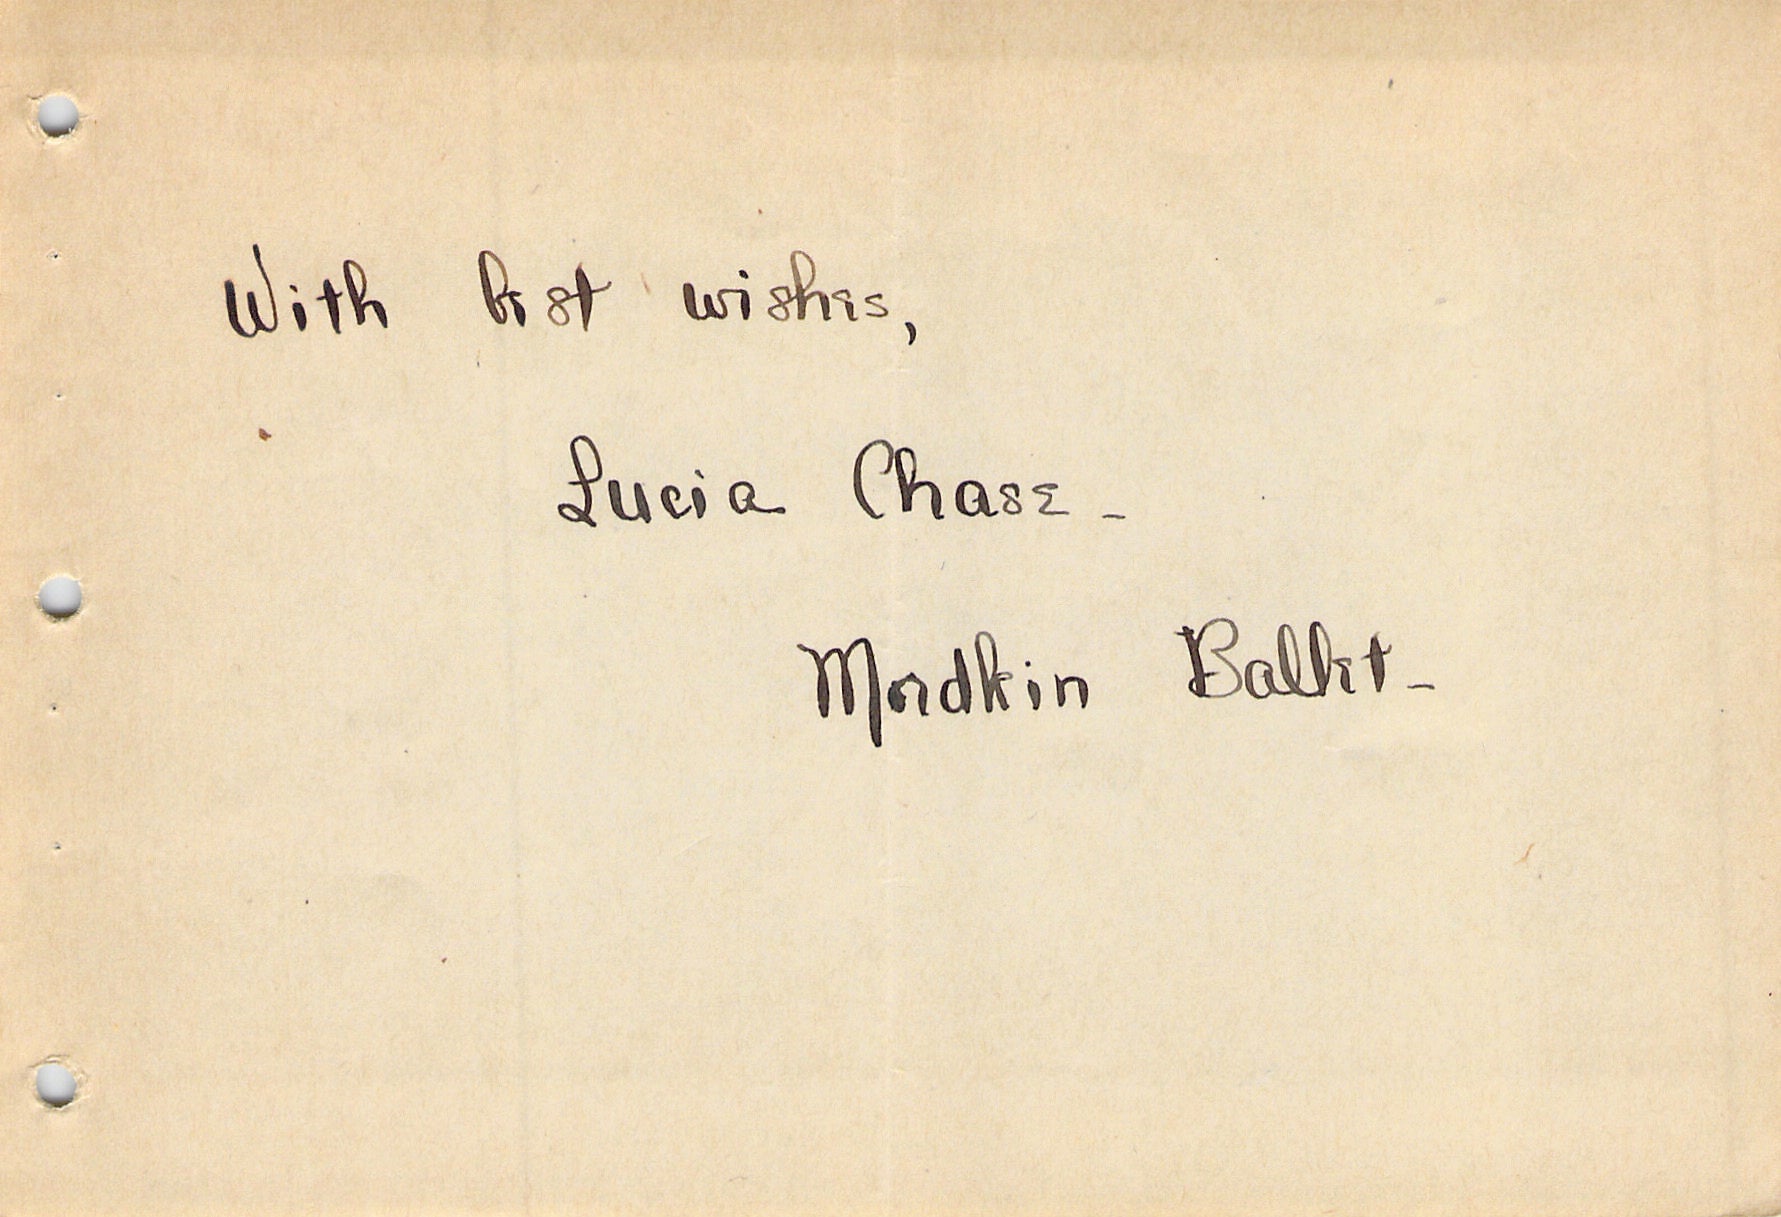 With best wishes,
Lucia Chase -
Mordkin Ballet -